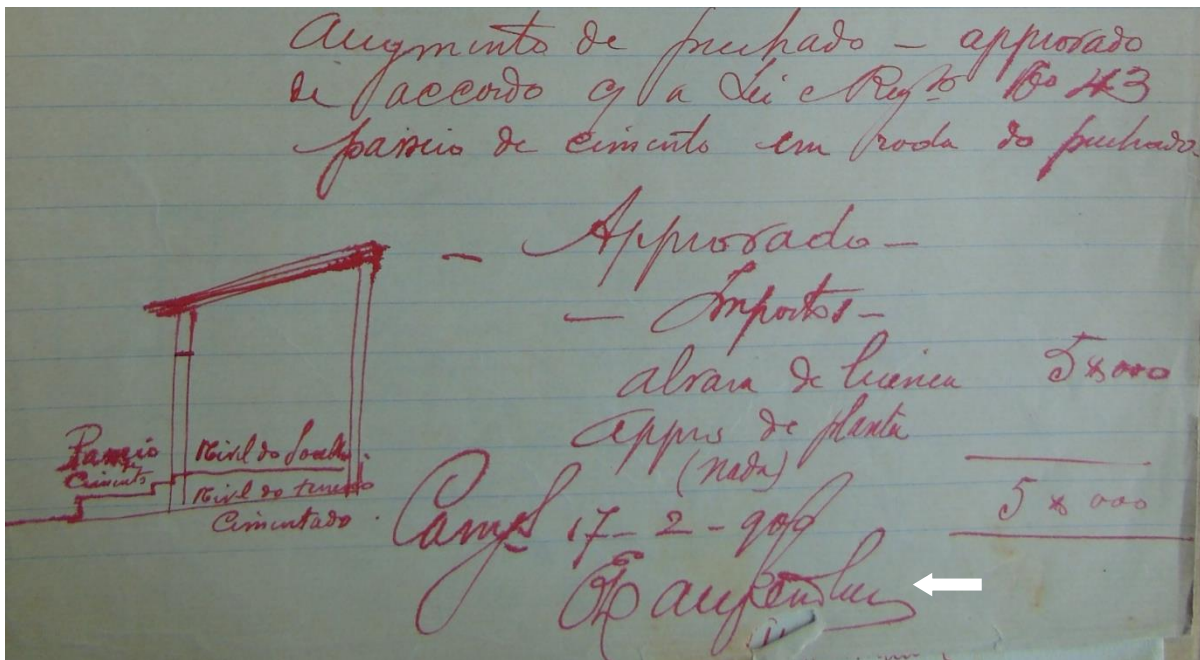 Augmento de puchado – approvado
de accordo c/ a Lei e Reg.to 43
passeio de cimento em roda do puchado
– Approvado –
– Impostos –
alvara de licença 5$000
appro de planta
(nada)
5$000
Passeio
Cimento
Nivel do Soalho
Nivel do terreno
Cimentado.
Camp.s 17-2-909